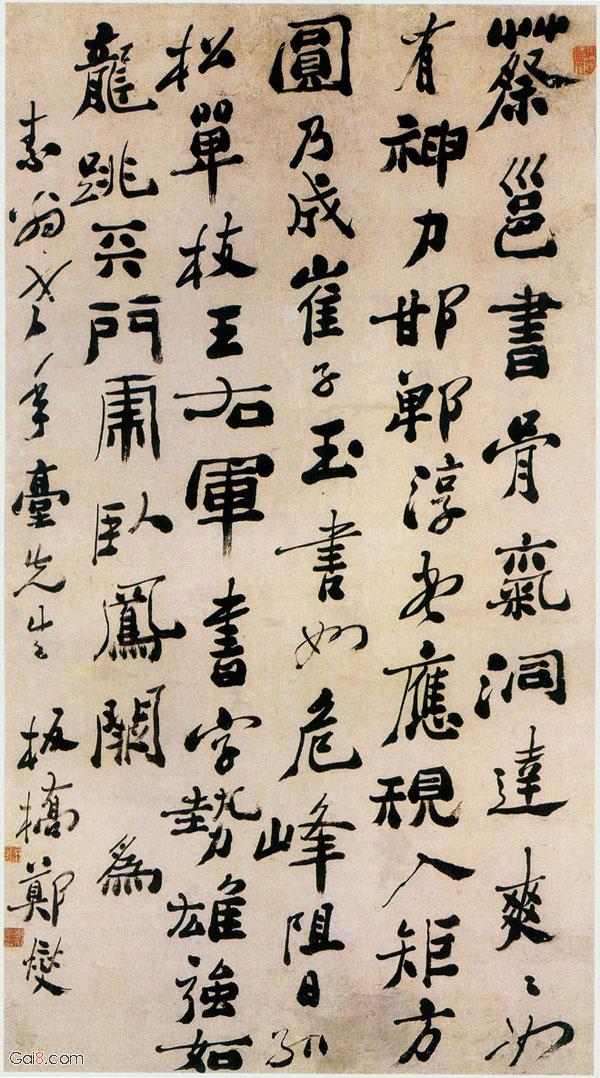 蔡邕書骨氣洞達爽〻如
有神力邯鄲淳書應規入矩方
圓乃成崔子玉書如危峰阻日孤
松單枝王右軍書字勢雄強如
龍跳天門虎臥鳳闕 為
素翁年臺先生 板橋鄭燮
Gai8.com